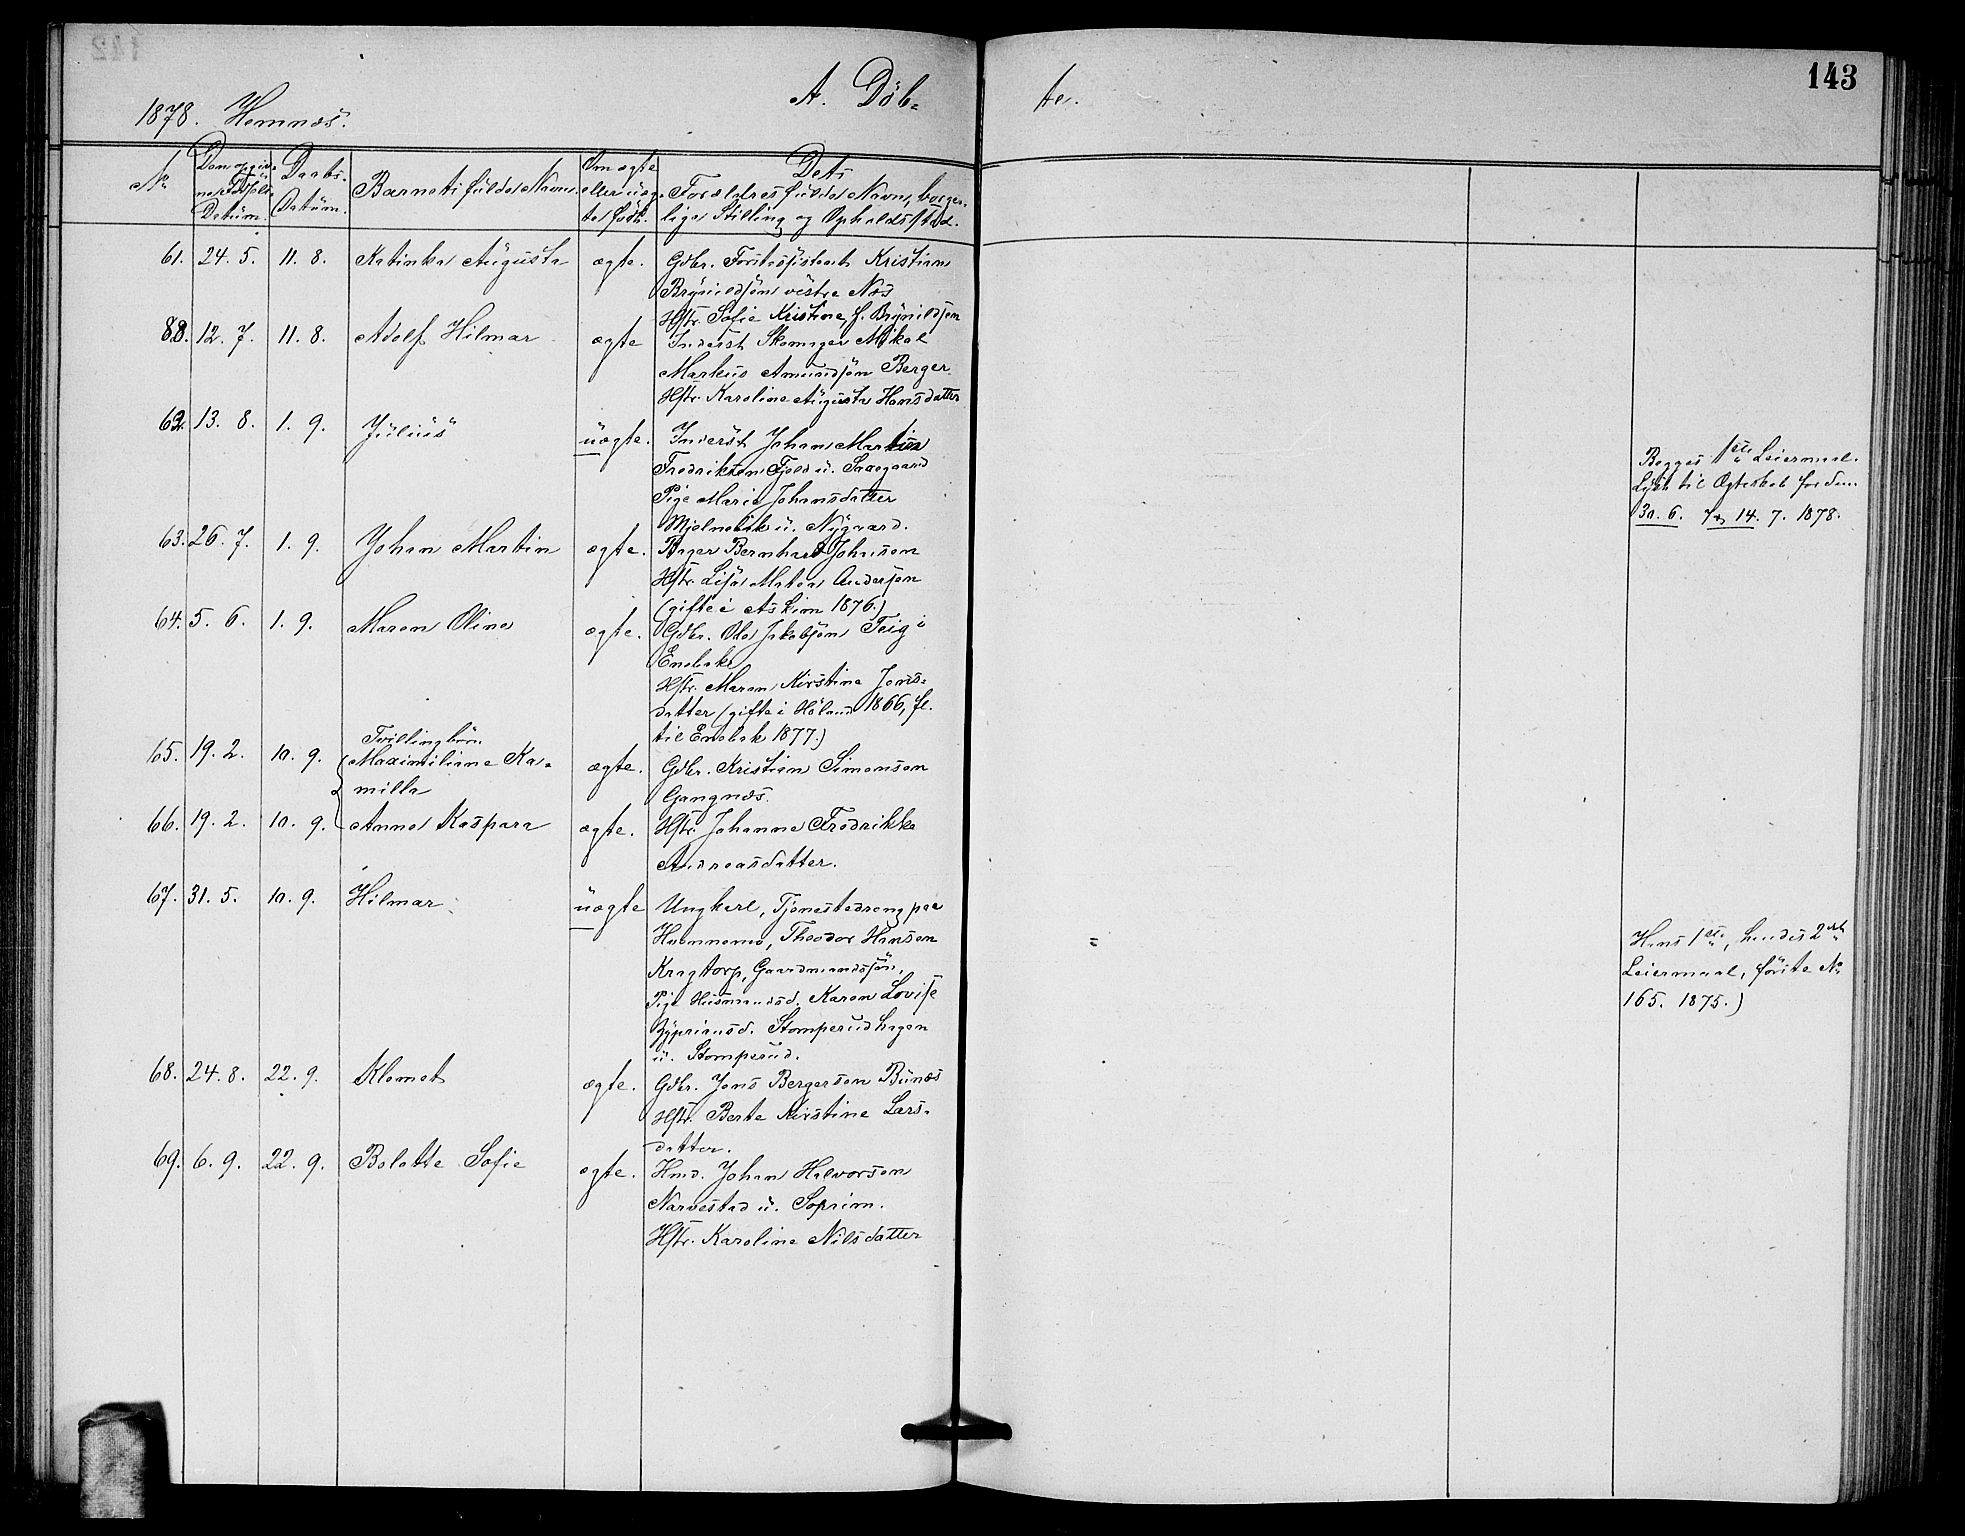 143
1878. Hemnæs.
A. Döb-
te.
No
Den opgivne Födsels-Datum.
Daabs-Datum.
Barnets fulde Navn.
Om ægte eller uægte födt.
Dets
Forældres fulde Navn, borger-
lige Stilling og Opholdssted.
61. 24. 5. 11. 8. Katinka Augusta ægte. Gdbr. Forstassistent Kristian
Brynildsen vestre Næs
Hstr. Sofie Kristine, f. Brynildsen
88. 12. 7. 11. 8. Adolf Hilmar ægte Inderst Skomager Mikal
Markus Amundsön Berger.
Hstr. Karoline Augusta Hansdatter
62. 13. 8. 1. 9. Julius uægte. Inderst Johan Martin
Fredriksen Fjeld u. Saxegaard
Pige Marie Johansdatter
Mjelnebæk u. Nygaard.
Begges 1ste Leiermaal.
Lyst til Ægteskab for dem
30. 6. 7 & 14. 7. 1878.
63. 26. 7. 1. 9. Johan Martin ægte. Bager Bernhard Johnsen
Hstr. Lisa Matea Andersen
(gifte i Askim 1876.)
64. 5. 6. 1. 9. Maren Oline ægte. Gdbr. Ole Jakobsen Teig i
Enebak
Hstr. Maren Kirstine Jens-
datter (gifte i Höland 1866, fl.
til Enebak 1877.)
Tvillingbörn.
65. 19. 2. 10. 9. Maximiliane Ka- ægte. Gdbr. Kristian Simensen
milla Gangnæs.
66. 19. 2. 10. 9. Anne Kaspara ægte. Hstr. Johanne Fredrikke
Andreasdatter.
67. 31. 5. 10. 9. Hilmar uægte Ungkarl, Tjenestedreng paa
Theodor Hansen
Kragtorp, Gaardmandssön,
Pige Husmandsd. Karen Lovise
Zypriansd. Stomperudhagen
u. Stomperud.
Hans 1ste, hendes 2det
Leiermaal, förste No
165. 1875.)
68. 24. 8. 22. 9. Klemet ægte. Gdbr. Jens Bergersen Bunæs
Hstr. Berte Kirstine Lars-
datter.
69. 6. 9. 22. 9. Bolette Sofie ægte. Hmd. Johan Halvorsen
Narvestad u. Soprim.
Hstr. Karoline Nilsdatter